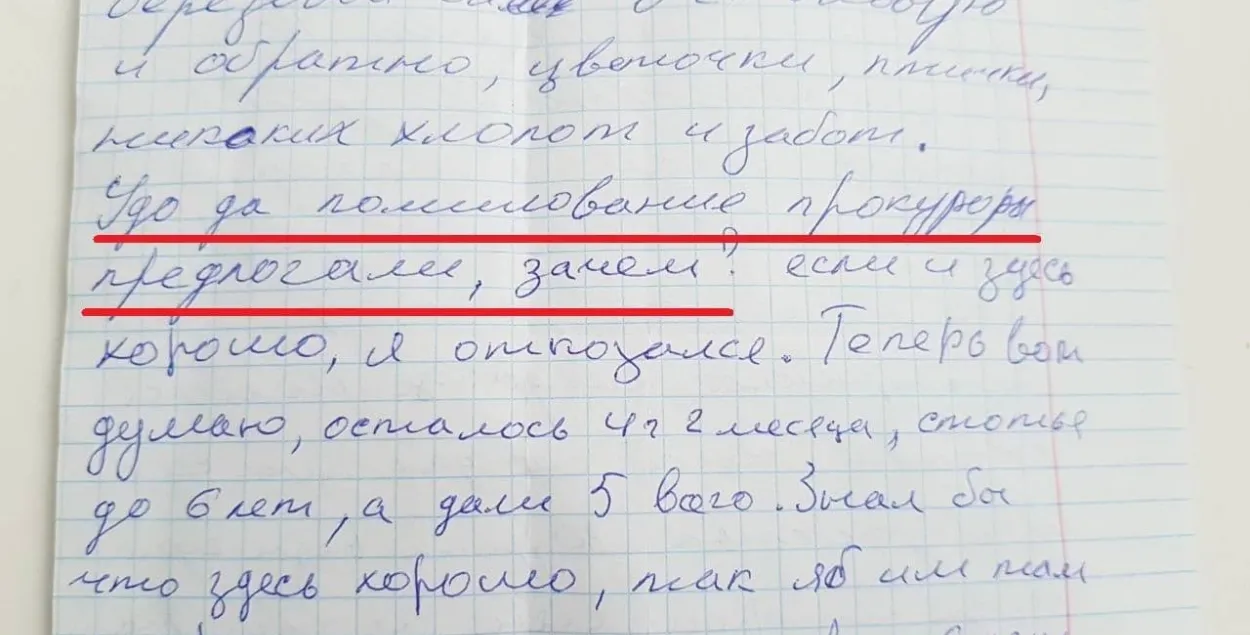 и обратно, цветочки, птички,
никаких хлопот и забот.
Удо да помилование прокуроры
предлогали, зачем? если и здесь
хорошо, я отказался. Теперь вот
думаю, осталось 4 г 2 месяца, статье
до 6 лет, а дали 5 всего. Знал бы
что здесь хорошо, так яб им там